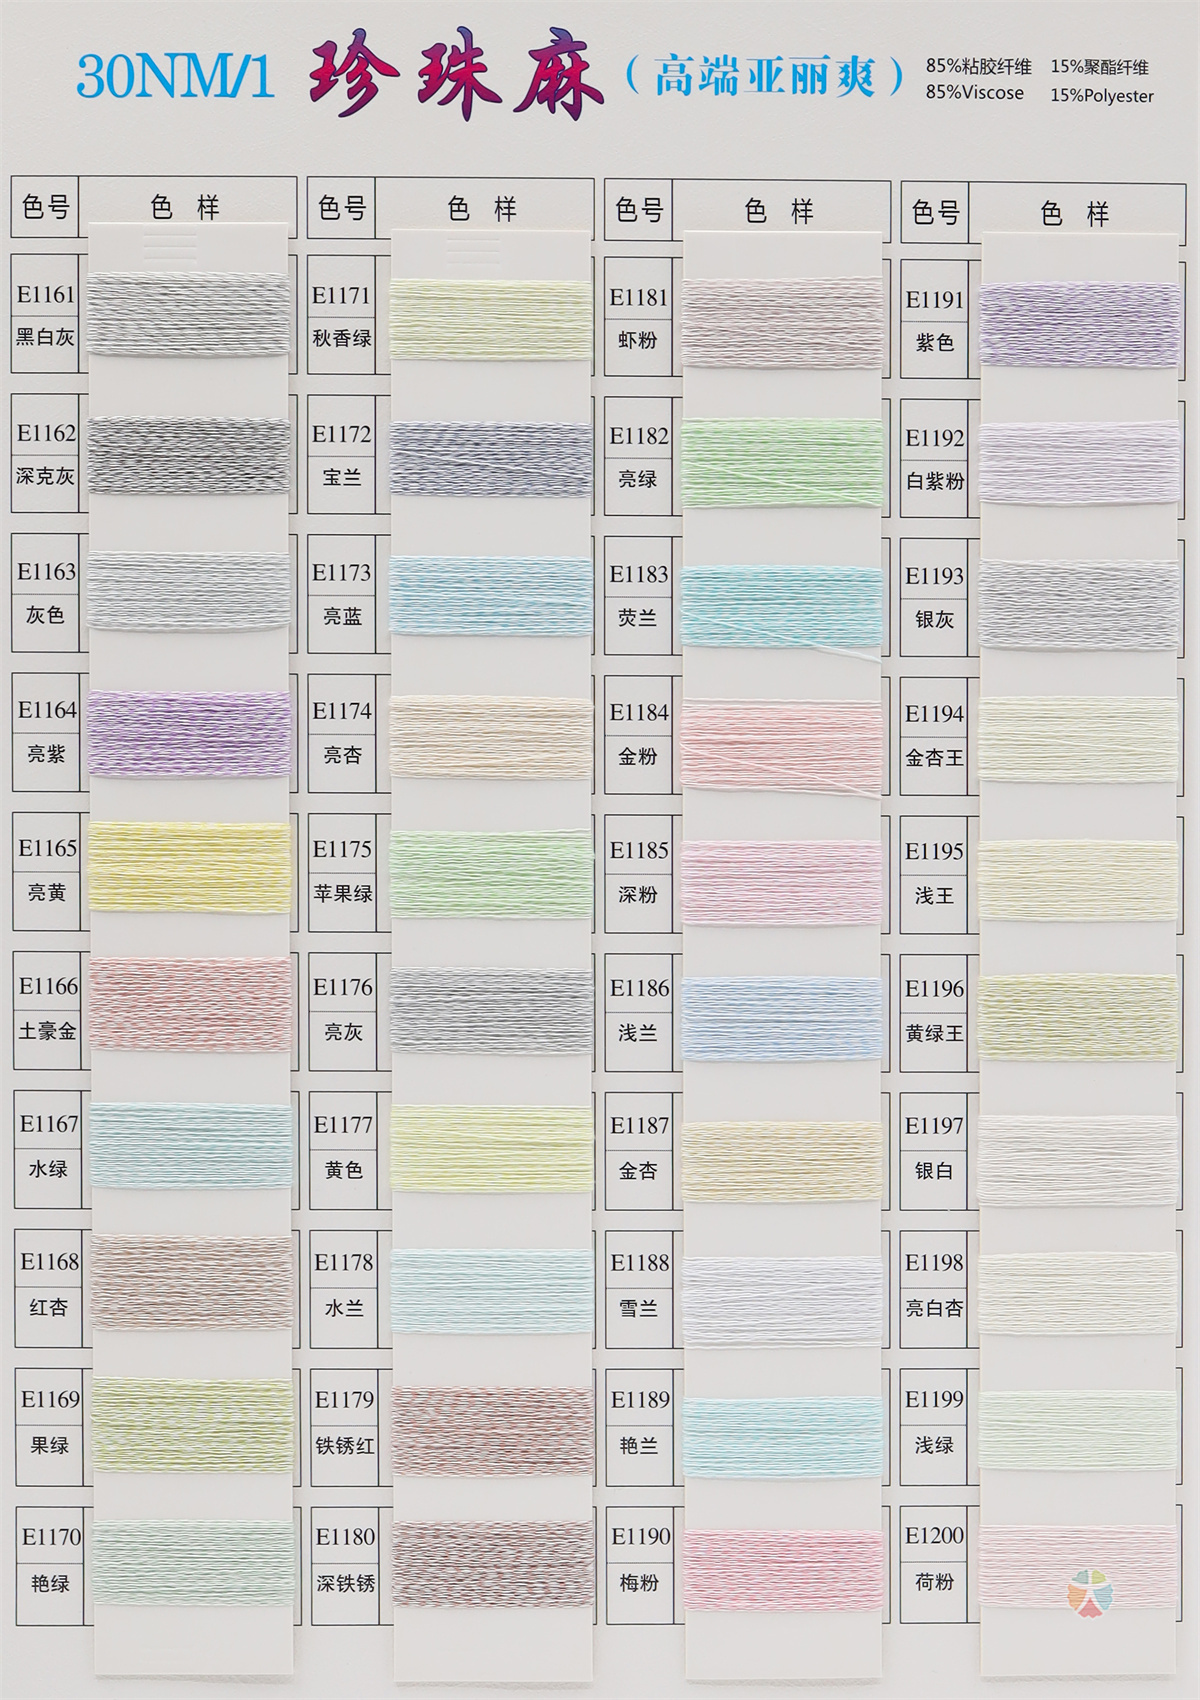 30NM/1 珍珠麻（高端亚丽爽） 85%粘胶纤维 15%聚酯纤维
85%Viscose 15%Polyester
色号 色样 色号 色样 色号 色样 色号 色样
E1161 E1171 E1181 E1191
黑白灰 秋香绿 虾粉 紫色
E1162 E1172 E1182 E1192
深克灰 宝兰 亮绿 白紫粉
E1163 E1173 E1183 E1193
灰色 亮蓝 荧兰 银灰
E1164 E1174 E1184 E1194
亮紫 亮杏 金粉 金杏王
E1165 E1175 E1185 E1195
亮黄 苹果绿 深粉 浅王
E1166 E1176 E1186 E1196
土豪金 亮灰 浅兰 黄绿王
E1167 E1177 E1187 E1197
水绿 黄色 金杏 银白
E1168 E1178 E1188 E1198
红杏 水兰 雪兰 亮白杏
E1169 E1179 E1189 E1199
果绿 铁锈红 艳兰 浅绿
E1170 E1180 E1190 E1200
艳绿 深铁锈 梅粉 荷粉